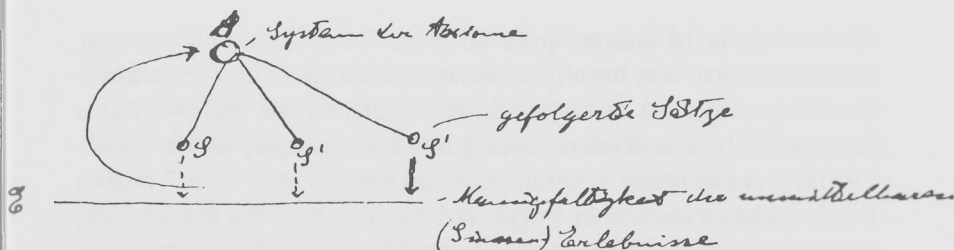 A
System der Axiome
S
S'
S'
gefolgerte Sätze
E
Mannigfaltigkeit der unmittelbaren
(Sinnes) Erlebnisse